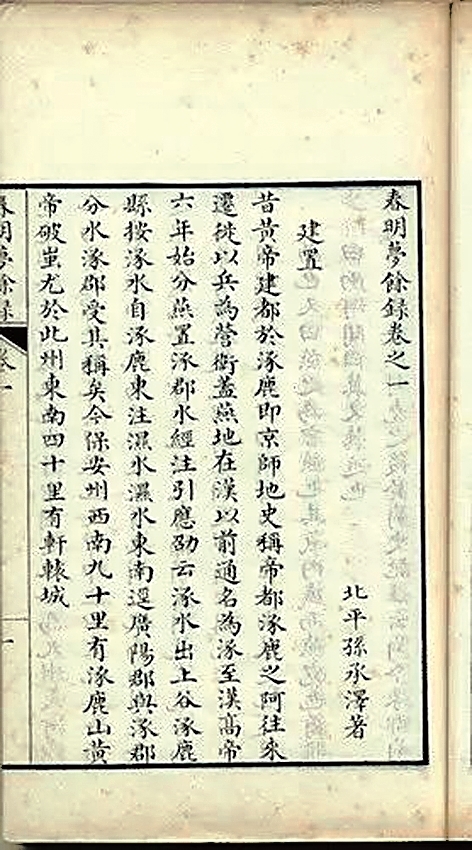 春明夢餘錄卷之一
北平孫承澤著
建置
昔黃帝建都於涿鹿即京師地史稱帝都涿鹿之阿往來
遷徙以兵為營衛蓋燕地在漢以前通名為涿至漢高帝
六年始分燕置涿郡水經注引應劭云涿水出上谷涿鹿
縣按涿水自涿鹿東注濕水濕水東南逕廣陽郡與涿郡
分水涿郡受其稱矣今保安州西南九十里有涿鹿山黃
帝破蚩尤於此州東南四十里有軒轅城
春明夢餘錄
卷一
一